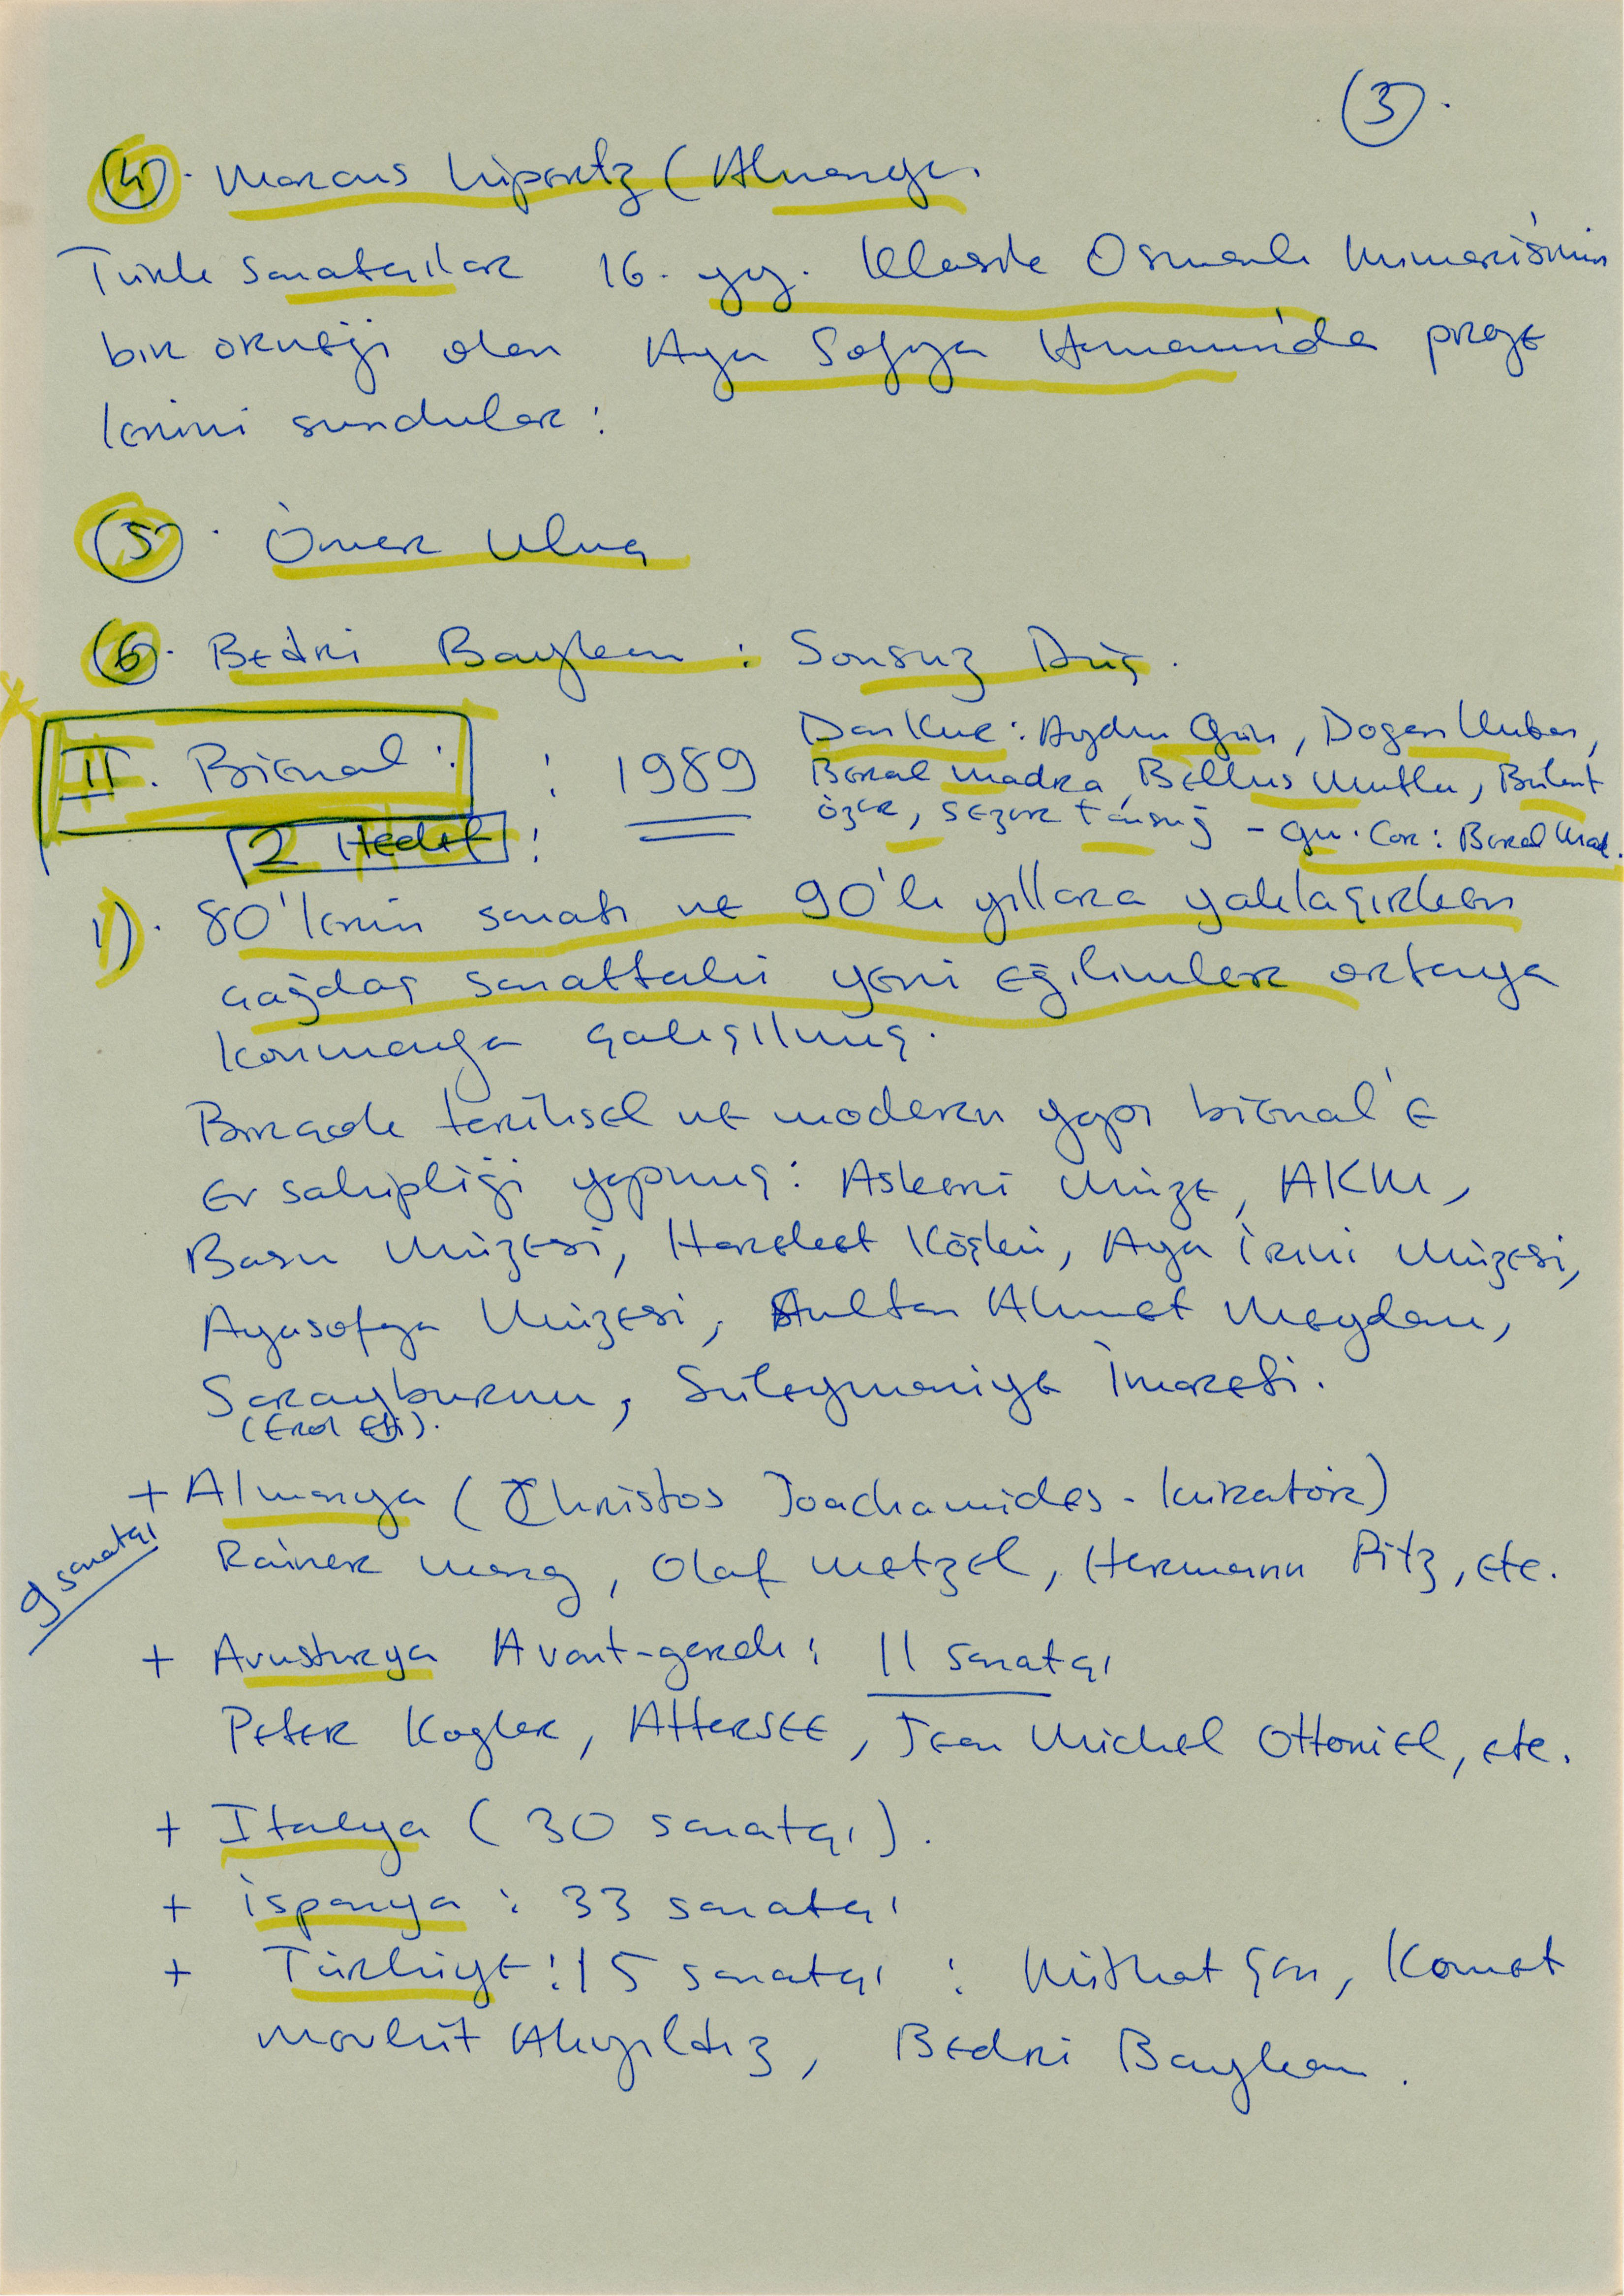 (3).
(4). Marcus Lüpertz (Almanya.
Türk sanatçılar 16. yy. Klasik Osmanlı Mimarisinin
bir örneği olan Aya Sofya Hamamı'da proje
lerini sundular:
(5). Ömer Uluç
(6). Bedri Baykam : Sonsuz Düş.
II. Bienal : : 1989
Dan Kur : Aydın Gün, Doğan Kuban,
Beral Madra, Belkıs Mutlu, Bülent
Özer, Sezer Tansuğ - Gn. Cor : Beral Mad.
2 Hedef :
1). 80'lerin sanatı ve 90'lı yıllara yaklaşırken
çağdaş sanattaki yeni eğilimler ortaya
konmaya çalışılmış.
Birçok tarihsel ve modern yapı bienal'e
Ev sahipliği yapmış : Askeri Müze, AKM,
Basın Müzesi, Hareket Köşkü, Aya İrini Müzesi,
Ayasofya Müzesi, Sultan Ahmet Meydanı,
Sarayburnu, Süleymaniye İmareti.
(Erol Eti).
+ Almanya (Christos Joachamides - küratör)
9 sanatçı
Rainer Mang, Olaf Metzel, Hermann Pitz, etc.
+ Avusturya Avant-garde : 11 sanatçı
Peter Kogler, Attersee, Jean Michel Ottoniel, etc.
+ Italya (30 sanatçı).
+ İspanya : 33 sanatçı
+ Türkiye : 15 sanatçı : Mithat Şen, Komet
Mevlüt Akyıldız, Bedri Baykam.